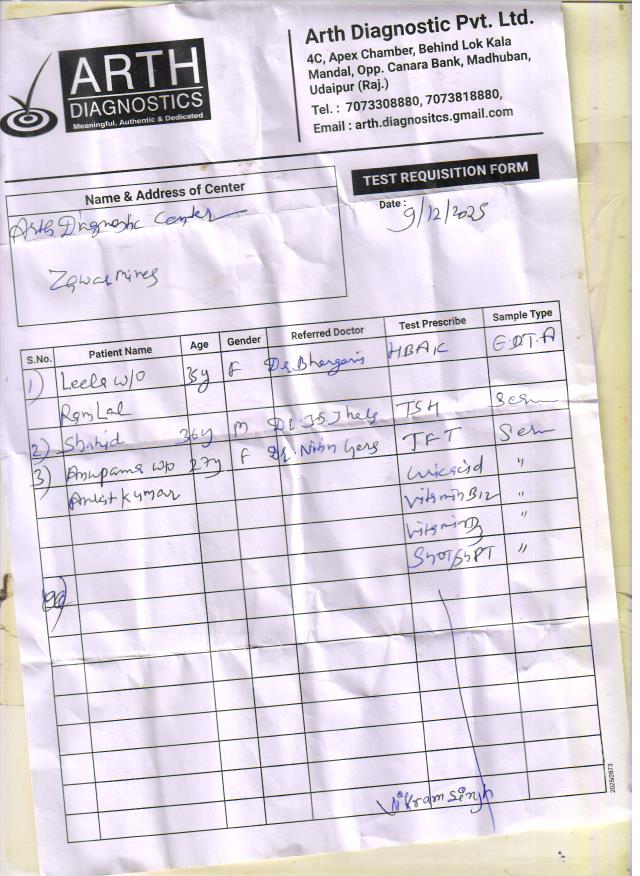 ARTH
DIAGNOSTICS
Meaningful, Authentic & Dedicated
Arth Diagnostic Pvt. Ltd.
4C, Apex Chamber, Behind Lok Kala
Mandal, Opp. Canara Bank, Madhuban,
Udaipur (Raj.)
Tel. : 7073308880, 7073818880,
Email : arth.diagnositcs.gmail.com
TEST REQUISITION FORM
Name & Address of Center
Date : 9/12/2025
Arth Diagnostic Center
Zawar Mines
S.No. Patient Name Age Gender Referred Doctor Test Prescribe Sample Type
1) Leela w/o 35y F Dr. E.D.T.A
Ram Lal
2) Shahid 36y M Dr. TSH
3) Anupama w/o 27y F Dr. Nitin TFT
Ankit Kumar uric acid "
Vitamin B12 "
Vitamin D3 "
SGOT/SGPT "
Vikram Singh
2025/2873